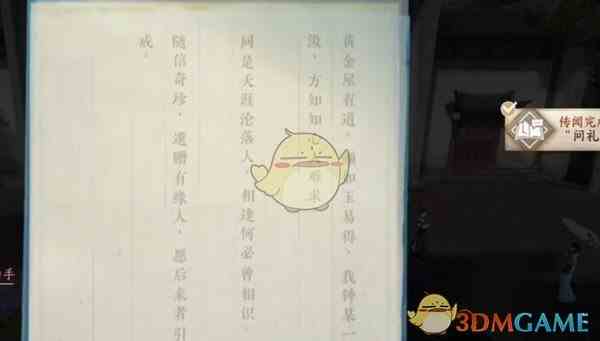 黄金屋有道,如玉易得,我钟某一
傲,方知知难求
同是天涯沦落人,相逢何必曾相识。
随信奇珍,遗赠有缘人,愿后来者引
戒。
传闻完成
"问礼
手
3DMGAME